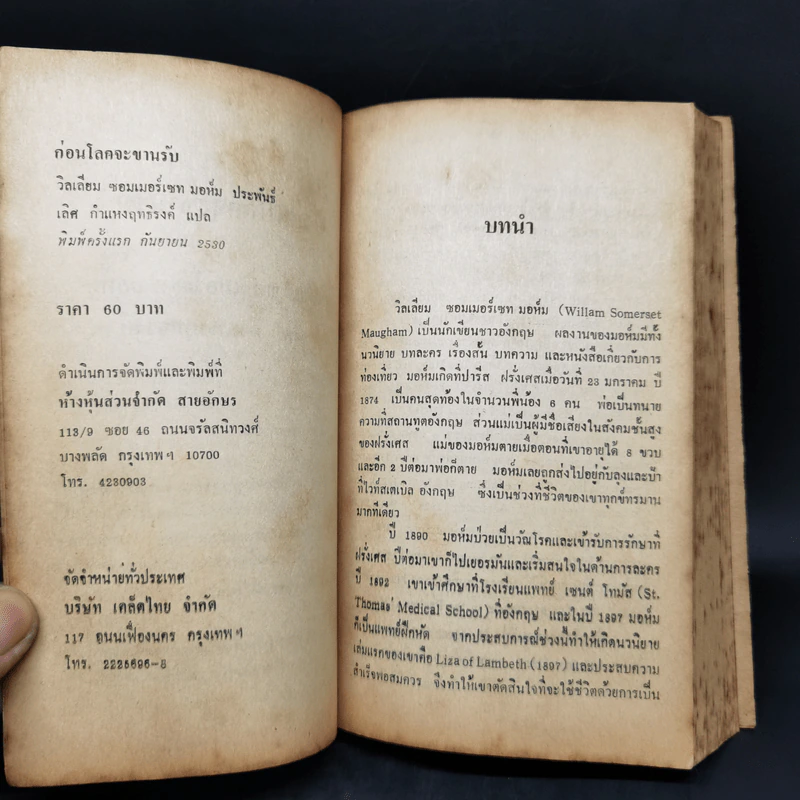 ก่อนโลกจะขานรับ
วิลเลียม ซอมเมอร์เซท มอห์ม ประพันธ์
เลิศ กำแหงฤทธิรงค์ แปล
พิมพ์ครั้งแรก กันยายน 2530
ราคา 60 บาท
ดำเนินการจัดพิมพ์และพิมพ์ที่
ห้างหุ้นส่วนจำกัด สายอักษร
113/9 ซอย 46 ถนนจรัลสนิทวงศ์
บางพลัด กรุงเทพฯ 10700
โทร. 4230903
จัดจำหน่ายทั่วประเทศ
บริษัท เคล็ดไทย จำกัด
117 ถนนเฟื่องนคร กรุงเทพฯ
โทร. 2225696-8
บทนำ
วิลเลียม ซอมเมอร์เซท มอห์ม (Willam Somerset
Maugham) เป็นนักเขียนชาวอังกฤษ ผลงานของมอห์มมีทั้ง
นวนิยาย บทละคร เรื่องสั้น บทความ และหนังสือเกี่ยวกับการ
ท่องเที่ยว มอห์มเกิดที่ปารีส ฝรั่งเศสเมื่อวันที่ 23 มกราคม ปี
1874 เป็นคนสุดท้องในจำนวนพี่น้อง 6 คน พ่อเป็นทนาย
ความที่สถานทูตอังกฤษ ส่วนแม่เป็นผู้มีชื่อเสียงในสังคมชั้นสูง
ของฝรั่งเศส แม่ของมอห์มตายเมื่อตอนที่เขาอายุได้ 8 ขวบ
และอีก 2 ปีต่อมาพ่อก็ตาย มอห์มเลยถูกส่งไปอยู่กับลุงและป้า
ที่ไวท์สเตเบิล อังกฤษ ซึ่งเป็นช่วงที่ชีวิตของเขาทุกข์ทรมาน
มากทีเดียว
ปี 1890 มอห์มป่วยเป็นวัณโรคและเข้ารับการรักษาที่
ฝรั่งเศส ปีต่อมาเขาก็ไปเยอรมันและเริ่มสนใจในด้านการละคร
ปี 1892 เขาเข้าศึกษาที่โรงเรียนแพทย์ เซนต์ โทมัส (St.
Thomas' Medical School) ที่อังกฤษ และในปี 1897 มอห์ม
ก็เป็นแพทย์ฝึกหัด จากประสบการณ์ช่วงนี้ทำให้เกิดนวนิยาย
เล่มแรกของเขาคือ Liza of Lambeth (1897) และประสบความ
สำเร็จพอสมควร จึงทำให้เขาตัดสินใจที่จะใช้ชีวิตด้วยการเป็น